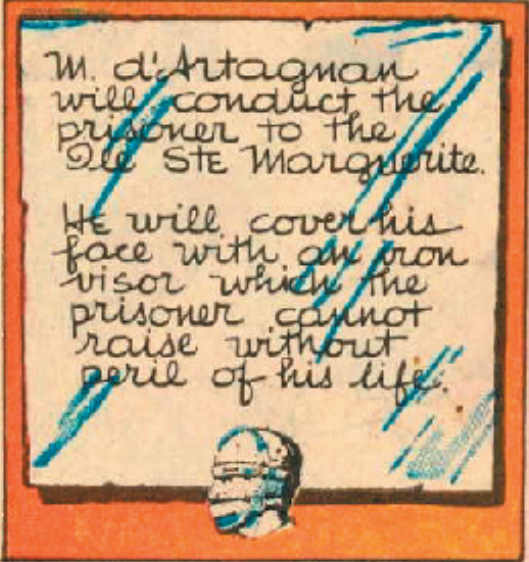 M. d'Artagnan
will conduct the
prisoner to the
Ile STE Marguerite.
HE will cover his
face with an iron
visor which the
prisoner cannot
raise without
peril of his life.